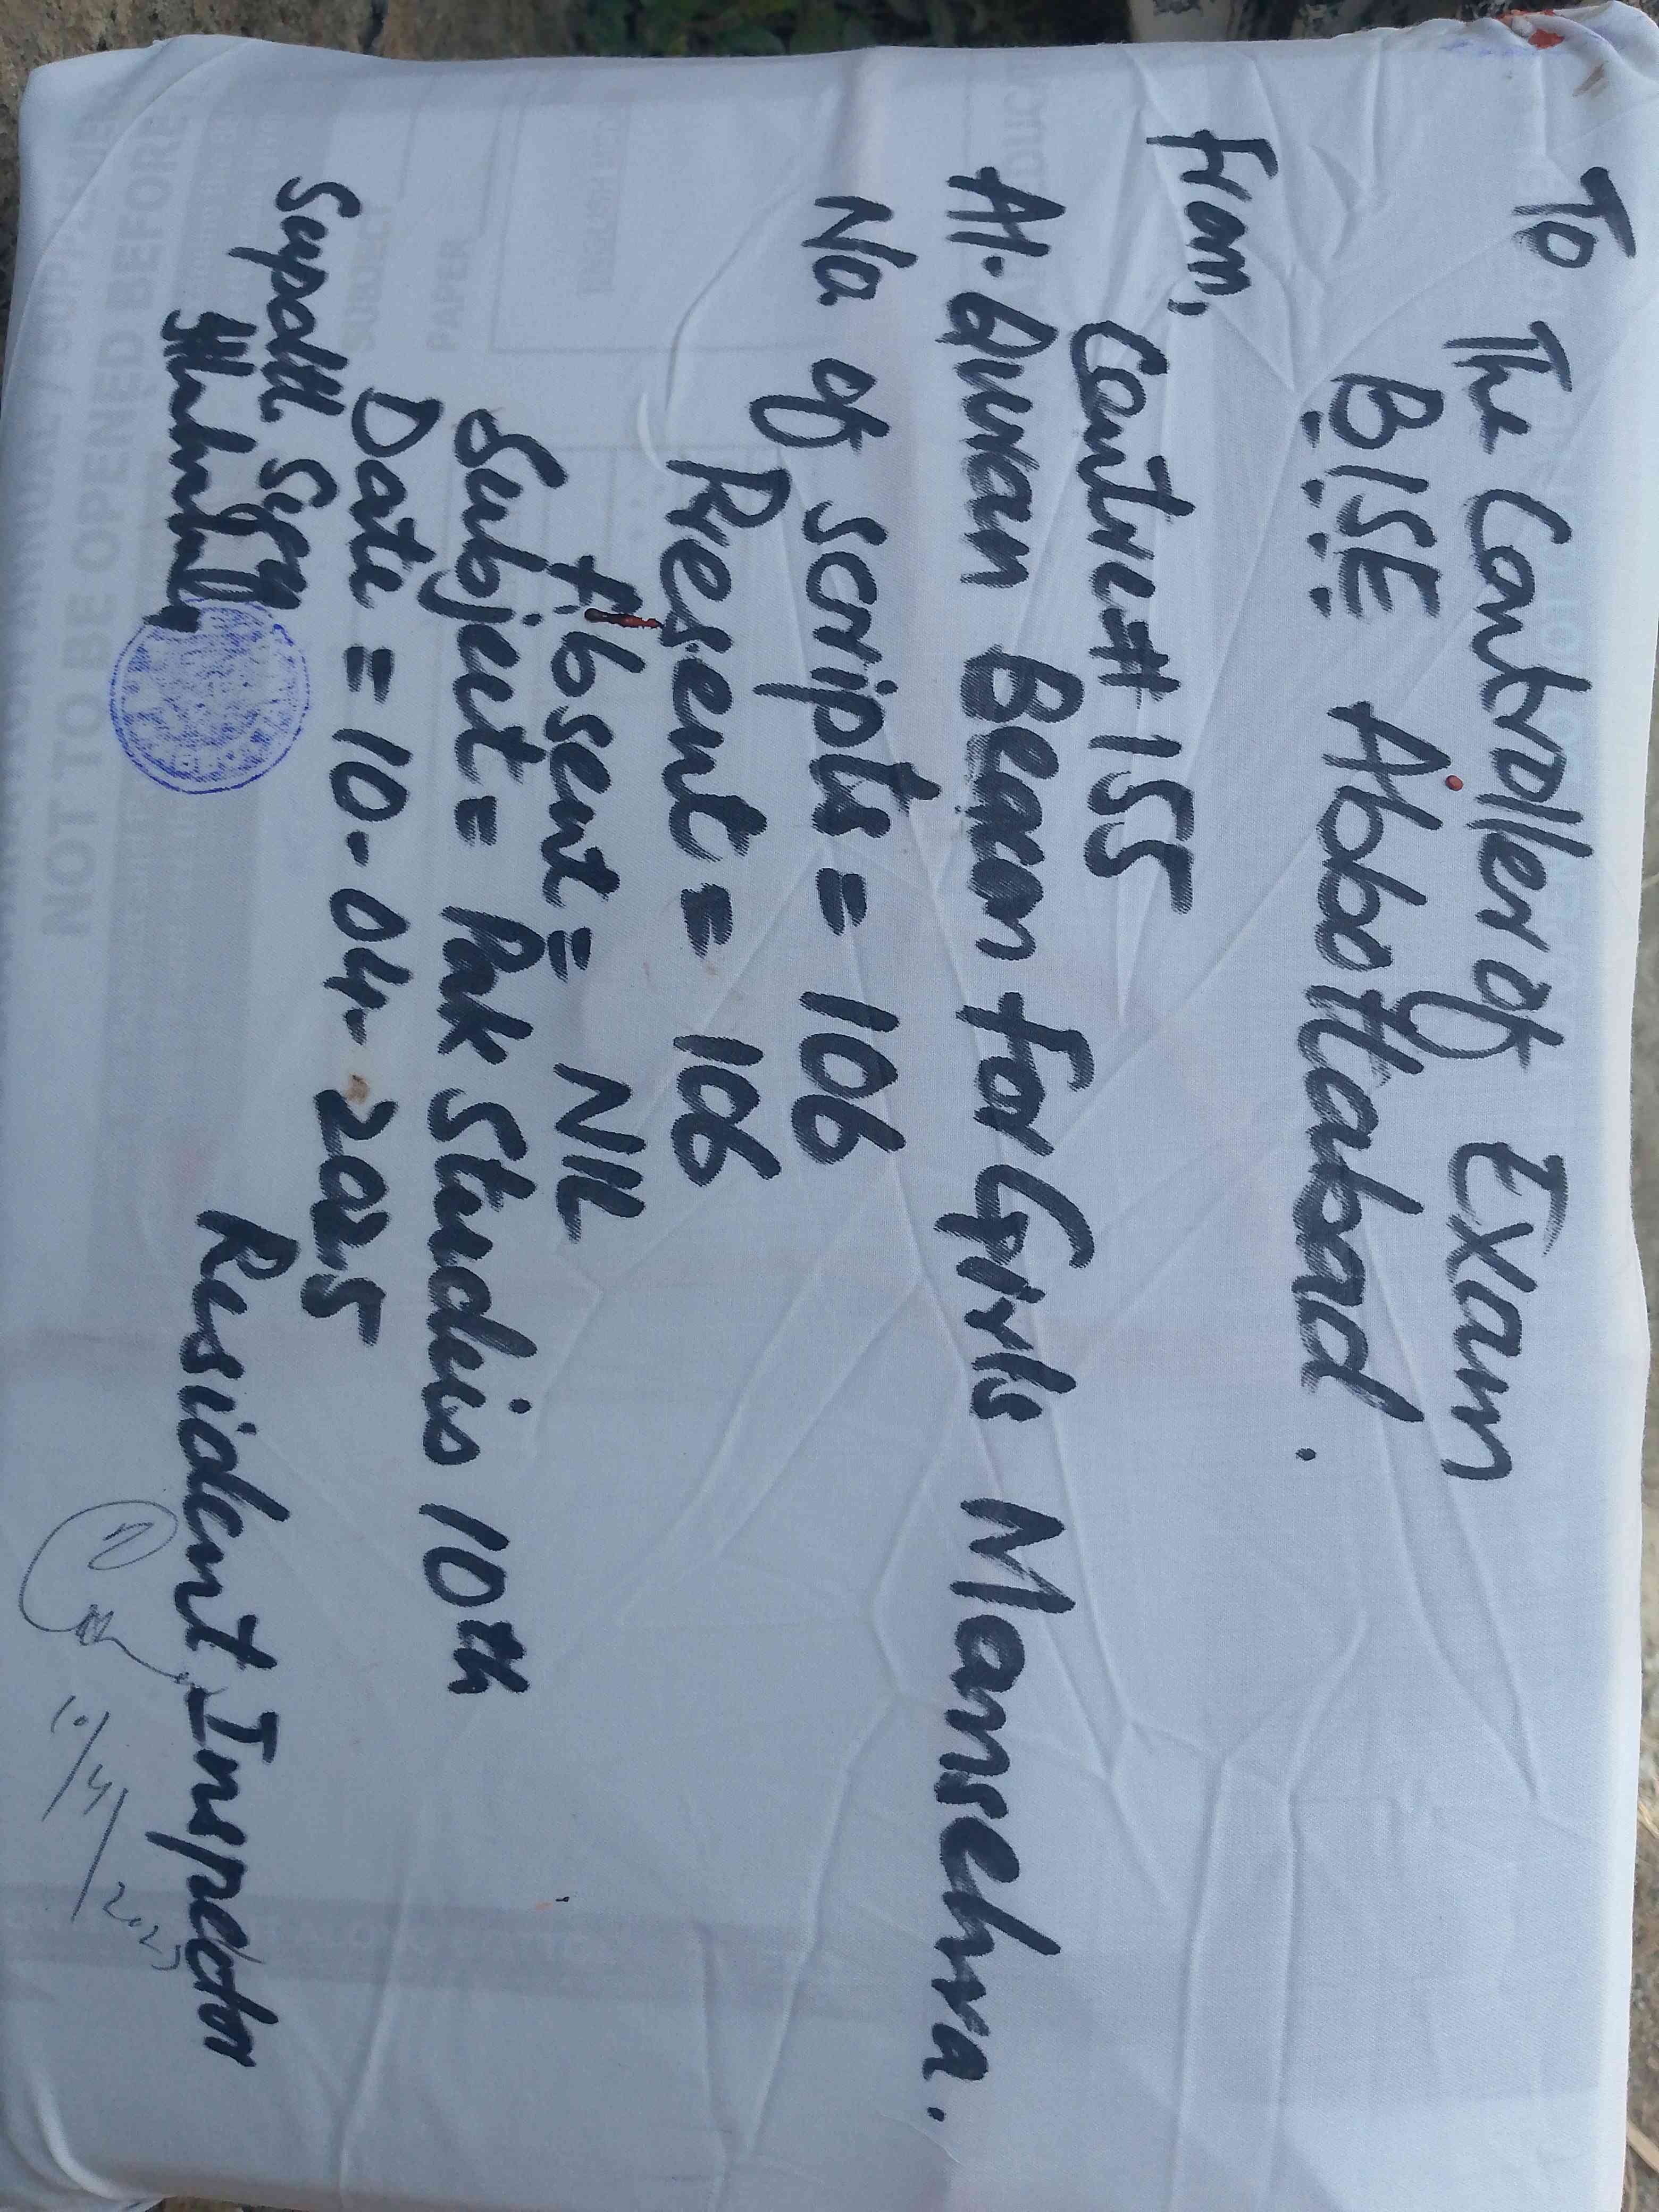 To
The Controller of Exam
B.I.S.E Abbottabad.
From,
Centre # 155
Al-Quran Beacon For Girls Mansehra.
No. of scripts = 106
Present = 106
Absent = NIL
Subject = Pak Studies 10th
Date = 10-04-2025
Supdtt Sign
Resident Inspector
10/4/2025
NOT TO BE OPENED BEFORE
SUBJECT
PAPER